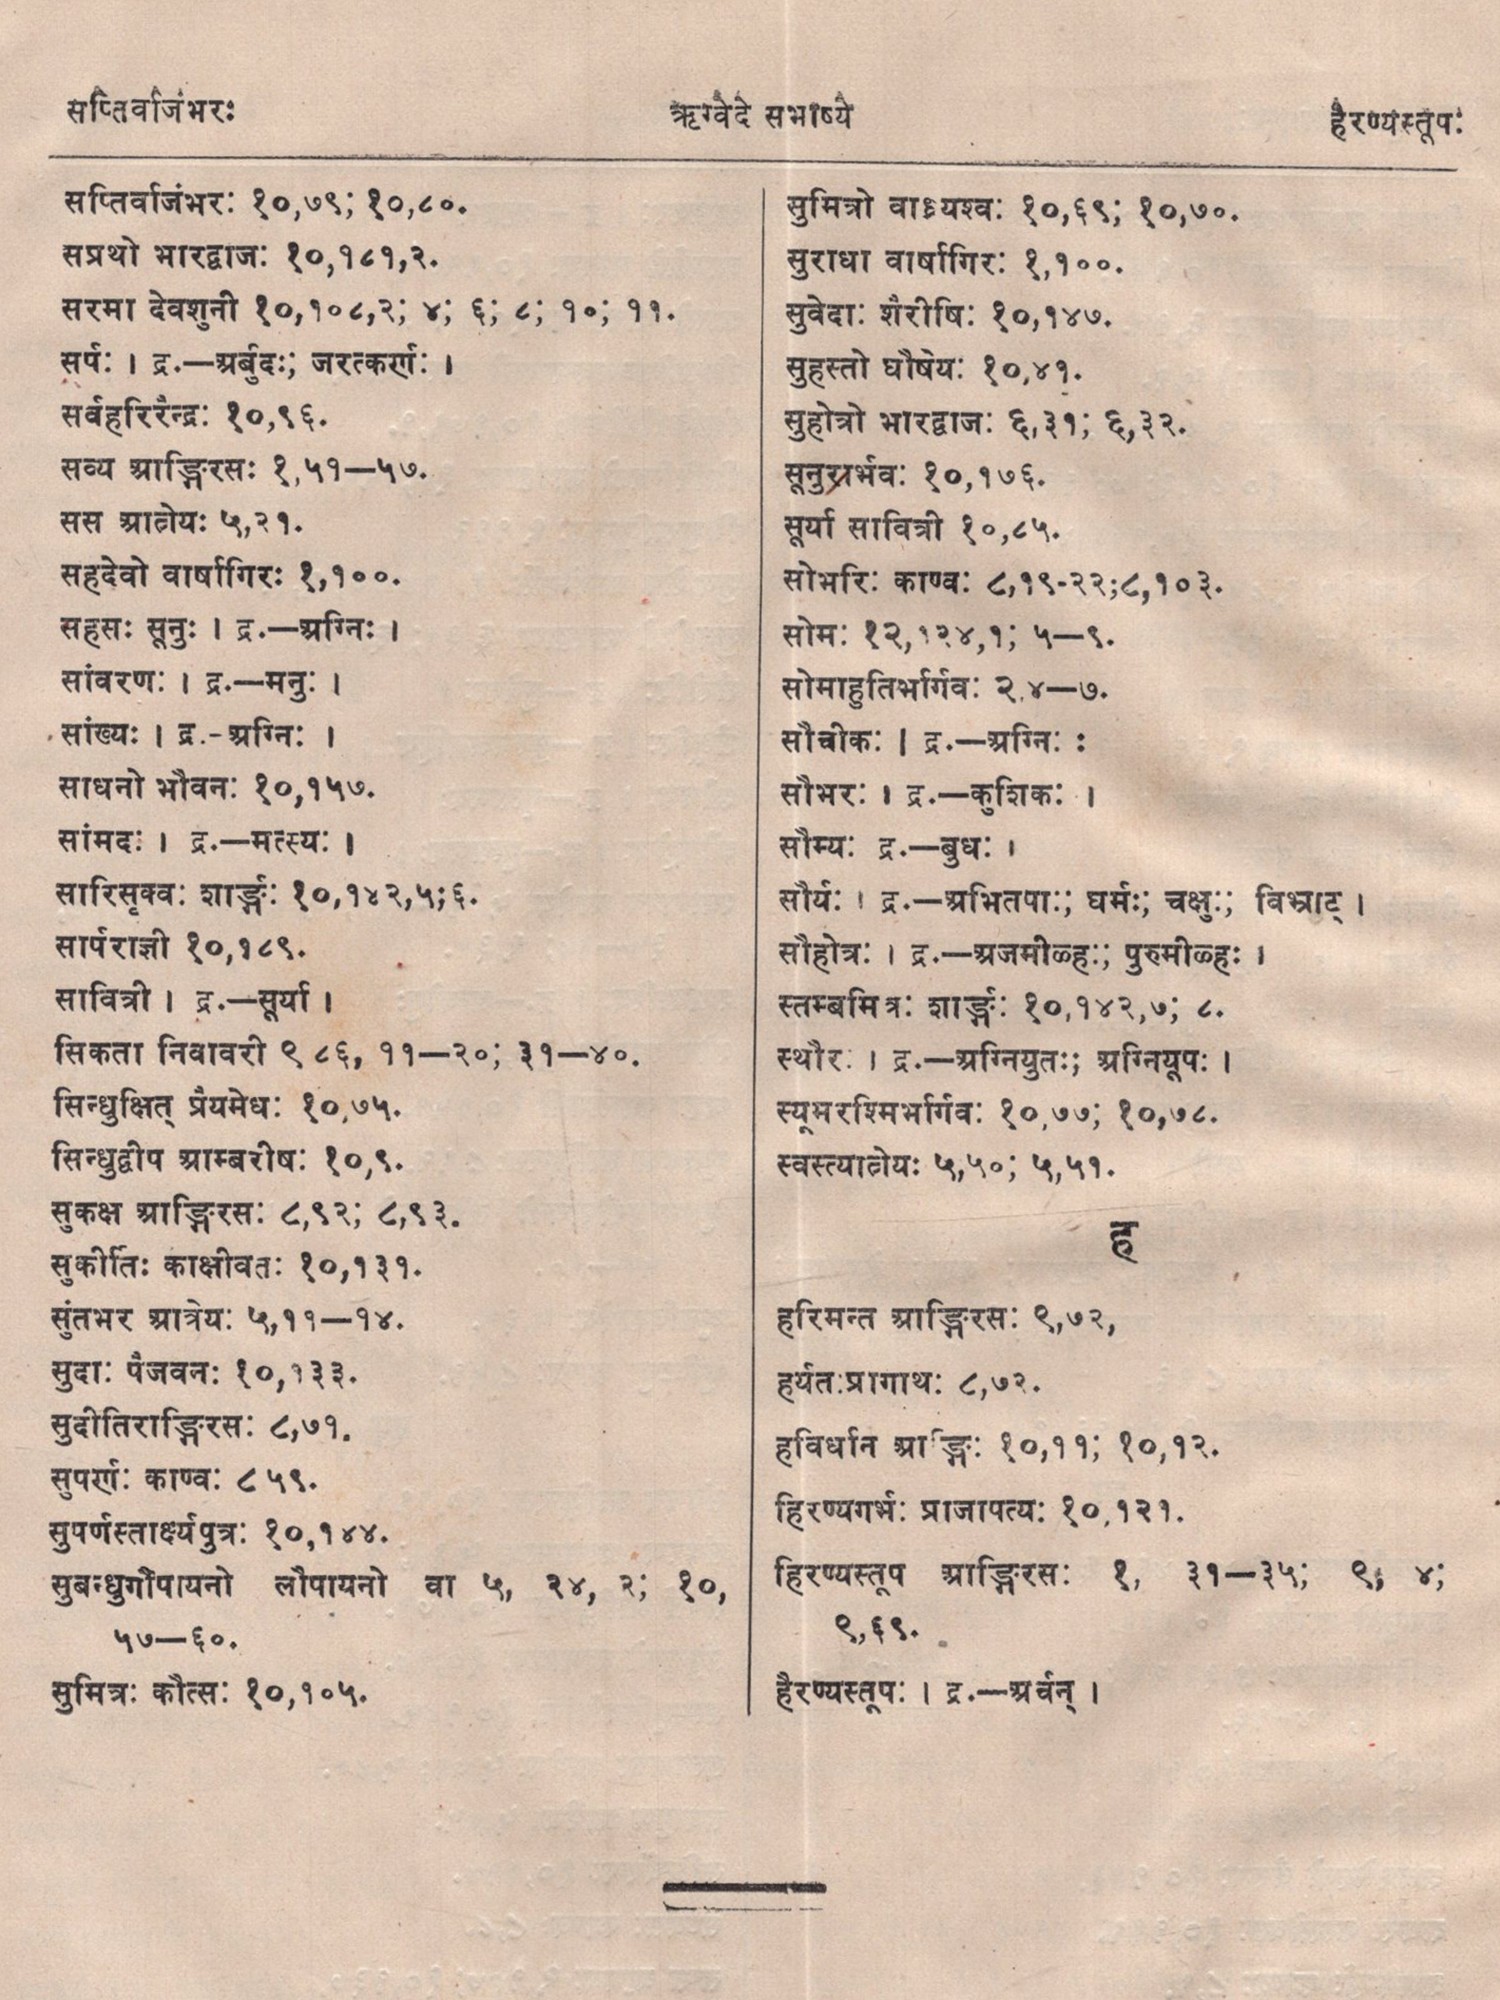 सप्तिर्वाजंभरः ऋग्वेदे सभाष्ये हैरण्यस्तूपः
सप्तिर्वाजंभरः १०,७९; १०,८०.
सप्रथो भारद्वाजः १०,१८१,२.
सरमा देवशुनी १०,१०८,२; ४; ६; ८; १०; ११.
सर्पः । द्र.—अर्बुदः; जरत्कर्णः ।
सर्वहरिरैन्द्रः १०,९६.
सव्य आङ्गिरसः १,५१—५७.
सस आत्रेयः ५,२१.
सहदेवो वार्षागिरः १,१००.
सहसः सूनुः । द्र.—अग्निः ।
सांवरणः । द्र.—मनुः ।
सांख्यः । द्र.-अग्निः ।
साधनो भौवनः १०,१५७.
सांमदः । द्र.—मत्स्यः ।
सारिसृक्वः शार्ङ्गः १०,१४२,५;६.
सार्पराज्ञी १०,१८९.
सावित्री । द्र.—सूर्या ।
सिकता निवावरी ९ ८६, ११—२०; ३१—४०.
सिन्धुक्षित् प्रैयमेधः १०,७५.
सिन्धुद्वीप आम्बरीषः १०,९.
सुकक्ष आङ्गिरसः ८,९२; ८,९३.
सुकीर्तिः काक्षीवतः १०,१३१.
सुंतभर आत्रेयः ५,११—१४.
सुदाः पैजवनः १०,१३३.
सुदीतिराङ्गिरसः ८,७१.
सुपर्णः काण्वः ८ ५९.
सुपर्णस्तार्क्ष्यपुत्रः १०,१४४.
सुबन्धुर्गौपायनो लौपायनो वा ५, २४, २; १०,
५७—६०.
सुमित्रः कौत्सः १०,१०५.
सुमित्रो वाध्र्यश्वः १०,६९; १०,७०.
सुराधा वार्षागिरः १,१००.
सुवेदाः शैरीषिः १०,१४७.
सुहस्तो घौषेयः १०,४१.
सुहोत्रो भारद्वाजः ६,३१; ६,३२.
सूनुरार्भवः १०,१७६.
सूर्या सावित्री १०,८५.
सोभरिः काण्वः ८,१९-२२;८,१०३.
सोमः १२,१२४,१; ५—९.
सोमाहुतिर्भार्गवः २,४—७.
सौचीकः | द्र.—अग्निः :
सौभरः । द्र.—कुशिकः ।
सौम्यः द्र.—बुधः ।
सौर्यः । द्र.—अभितपाः; घर्मः; चक्षुः; विभ्राट् ।
सौहोत्रः । द्र.—अजमीळ्हः; पुरुमीळ्हः ।
स्तम्बमित्रः शार्ङ्गः १०,१४२,७; ८.
स्थौरः । द्र.—अग्नियुतः; अग्नियूपः ।
स्यूमरश्मिर्भार्गवः १०,७७; १०,७८.
स्वस्त्यात्रेयः ५,५०; ५,५१.
ह
हरिमन्त आङ्गिरसः ९,७२,
हर्यतःप्रागाथः ८,७२.
हविर्धान आङ्गिः १०,११; १०,१२.
हिरण्यगर्भः प्राजापत्यः १०,१२१.
हिरण्यस्तूप आङ्गिरसः १, ३१—३५; ९, ४;
९,६९.
हैरण्यस्तूपः । द्र.—अर्चन् ।